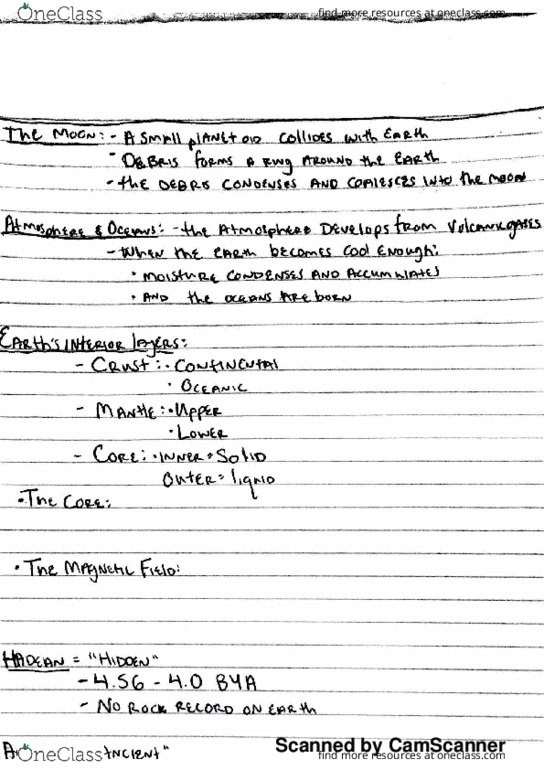 OneClass
find more resources at oneclass.com
The Moon: - A small planetoid collides with Earth
- Debris forms a ring around the Earth
- The debris condenses and coalesces into the moon
Atmosphere & Oceans: - the atmosphere develops from volcanic gases
- When the Earth becomes cool enough:
• moisture condenses and accumulates
• and the oceans are born
Earth's interior layers:
- Crust: • Continental
• Oceanic
- Mantle: • Upper
• Lower
- Core: • inner = Solid
outer = liquid
• The Core:
• The Magnetic Field:
Hadean = "Hidden"
- 4.56 - 4.0 BYA
- No rock record on Earth
Scanned by CamScanner
OneClass
find more resources at oneclass.com